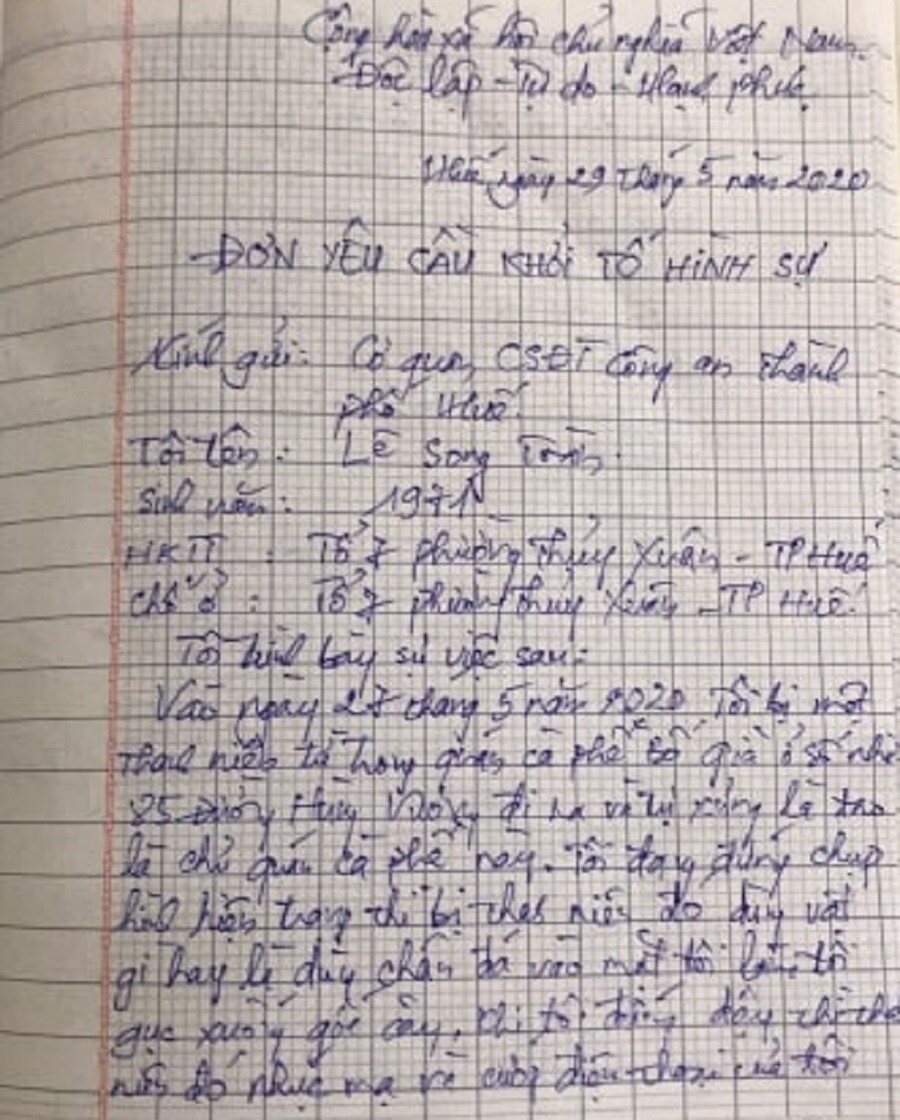 Cộng hòa xã hội chủ nghĩa Việt Nam
Độc lập - Tự do - Hạnh phúc
Huế ngày 29 tháng 5 năm 2020
ĐƠN YÊU CẦU KHỞI TỐ HÌNH SỰ
Kính gửi: Cơ quan CSĐT công an thành
phố Huế.
Tôi tên: Lê Song
Sinh năm: 1971
HKTT: Tổ 7 phường Thủy Xuân - TP Huế
Chỗ ở: Tổ 7 phường Thủy Xuân - TP Huế.
Tôi trình bày sự việc sau:
Vào ngày 27 tháng 5 năm 2020 Tôi bị một
thanh niên từ trong quán cà phê bố già ở số nhà
85 Đường Hùng Vương đi ra và tự xưng là tao
là chủ quán cà phê này. Tôi đang đứng chụp
hình hiện trạng thì bị thanh niên đó dùng vật
gì hay là dùng chân đá vào mặt tôi làm tôi
gục xuống gốc cây, khi tôi đứng dậy thì tha
niên đó nhục mạ và cướp điện thoại của tôi